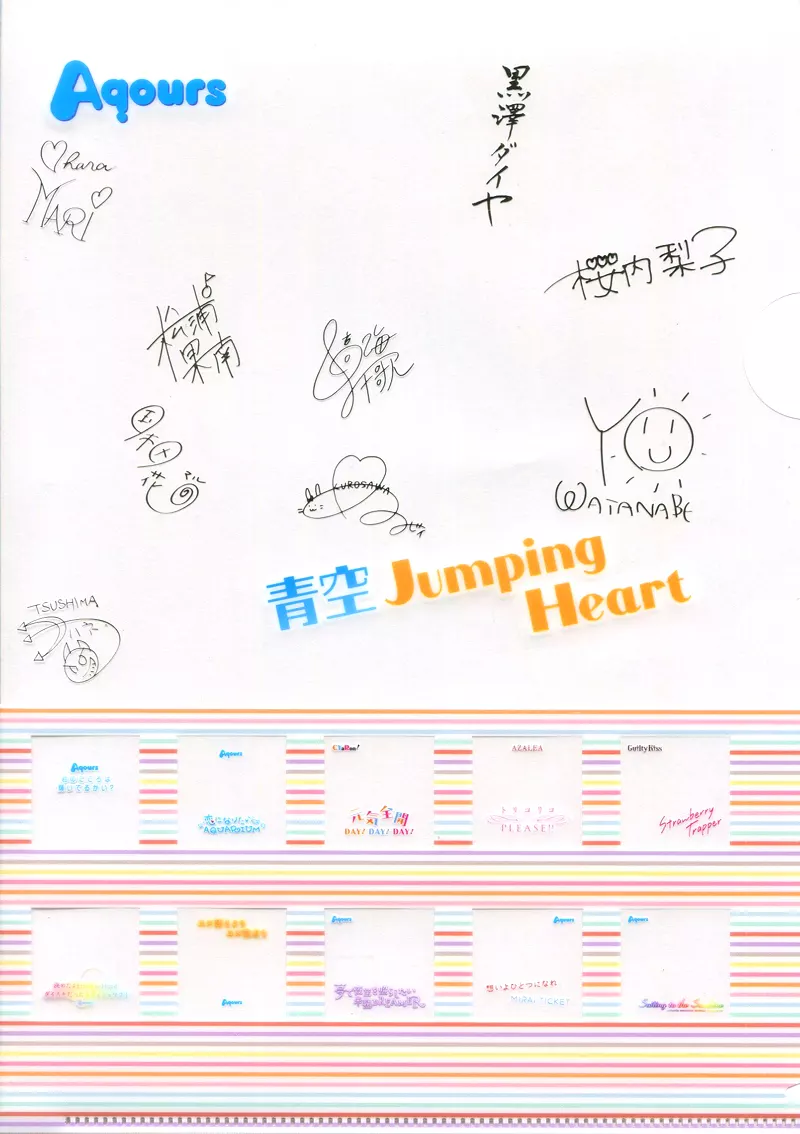 Aqours
黒澤ダイヤ
Ohara
MARI
桜内梨子
松浦
果南
高海
千歌
YO
WATANABE
KUROSAWA
青空 Jumping
Heart
TSUSHIMA
ヨハネ
Aqours
君のこころは
輝いてるかい?
Aqours
恋になりたい
AQUARIUM
CYaRon!
元気全開
DAY! DAY! DAY!
AZALEA
トリコリコ
PLEASE!!
Guilty Kiss
Strawberry
Trapper
ユメ語るより
ユメ歌おう
Aqours
Aqours
夢で夜空を照らしたい
Aqours
想いよひとつになれ
MIRAI TICKET
Aqours
Sailing to the Sunshine